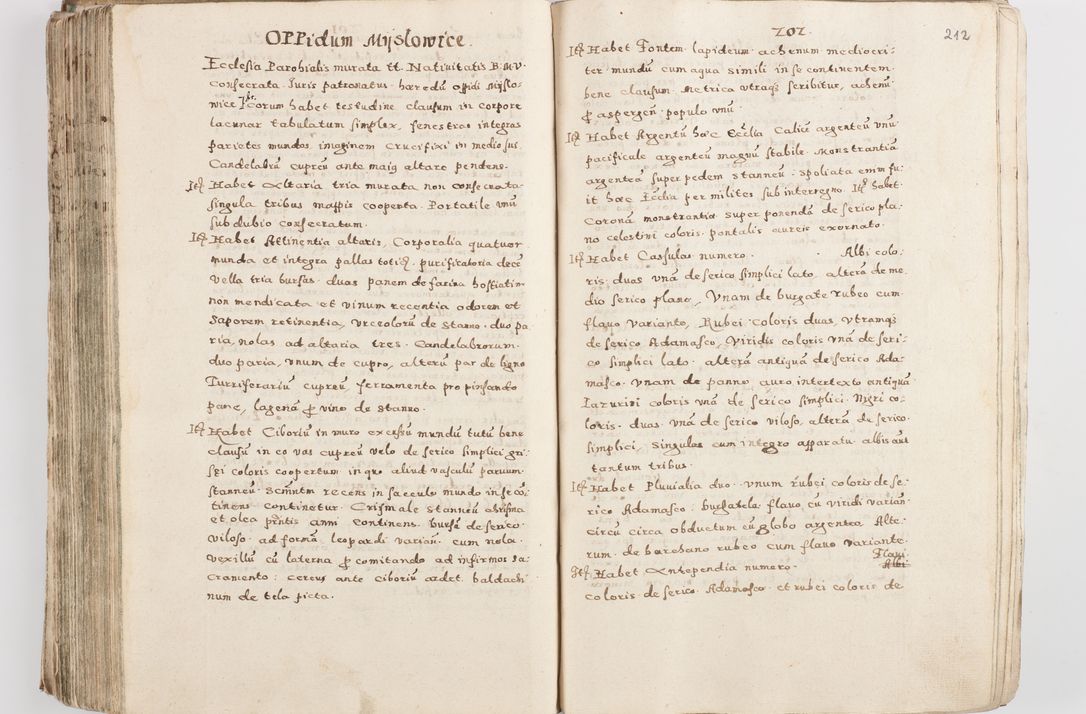 OPPidum Mysłowice.
Ecclesia Parohialis murata tt. Nativitatis B: M: V:
Consecrata. Iuris patronatus haeredū Oppidi Mysło-
wice Chorum habet testudine clausum in corpore
lacunar tabulatum simplex, fenestras integras
parietes mundos imaginem Crucifixi in medio sui
Candelabrū cupreū ante maiꝰ altare pendens.
Itꝫ Habet Altaria tria murata non consecrata
singula tribus mappis cooperta. Portatile unū
sub dubio consecratum.
Itꝫ Habet Attinentia altaris, Corporalia quatuor
munda et integra pallas totiꝫ. purificatoria decē
vella tria bursas duas panem de farina hostiatim
non mendicata et vinum recentia odorem et
saporem retinentia, Urceolorū de stanno duo pa
ria, nolas ad altaria tres. Candelabrorum
duo paria, unum de cupro, alterū par de ligno
Turriferariū cupreū ferramenta pro pinsando
pane, lagenā ꝓ vino de stanno.
Itꝫ Habet Ciboriū in muro excissū mundū tutū bene
clausū in eo vas cupreū velo de serico simplici gri-
sei coloris coopertum in quo aliud vasculū parvum
stanneū Scm̄ntm recens in sacculo mundo in se cō-
tinens continetur. Crismale stanneū chrisma
et olea p̄ntis anni continens. bursā de serico
viloso ad formā leopardi variaū. cum nola.
vexillū cū laterna ꝓ comitando ad infirmos sa-
cramento: cereus ante ciboriū ardet. baldachi
num de tela picta.
202.
212
Itꝫ Habet Fontem lapideum achenum mediocri-
ter mundū cum aqua simili in se continentem
bene clausum. Metrica utraqꝫ scribitur, achenū
ꝓ aspergeñ populo unū.
Itꝫ Habet Argentū haec Ecclīa Calicē argenteū unū
pacificale argenteū magnū stabile. Monstrantiā
argenteā super pedem stanneū. spoliata enim fu-
it haec Eccłia per milites sub interregno. Itꝫ habet
Coronā monstrantiae super ponendā de serico pla-
no celestini coloris pontalis aureis exornato.
Itꝫ Habet Casulas numero. Albi colo-
ris duas unā de serico simplici lato alterā de me
dio serico plano, Unam de burgate rubeo cum
flavo varianto, Rubei coloris duas, utramqꝫ
de serico Adamasco, Viridis coloris unā de seri-
co simplici lato. alterā antiquā de serico Ada-
masco. Unam de panno auro intertexto antiquā
Iazurini coloris unā de serico simplici. Nigri co-
loris duas. unā de serico viloso, alterā de serico
simplici, singulas cum integro apparatu albis aut
tantum tribus.
Itꝫ Habet Pluvialia duo. unum rubei coloris de se-
rico Adamasco. burgatela flavo cū viridi varian̄
circū circa obductum cū globo argenteo Alte-
rum de borchano rubeo cum flavo variante.
Flavi
Itꝫ Habet Antependia numero. Albi
coloris de serico Adamasco et rubei coloris de